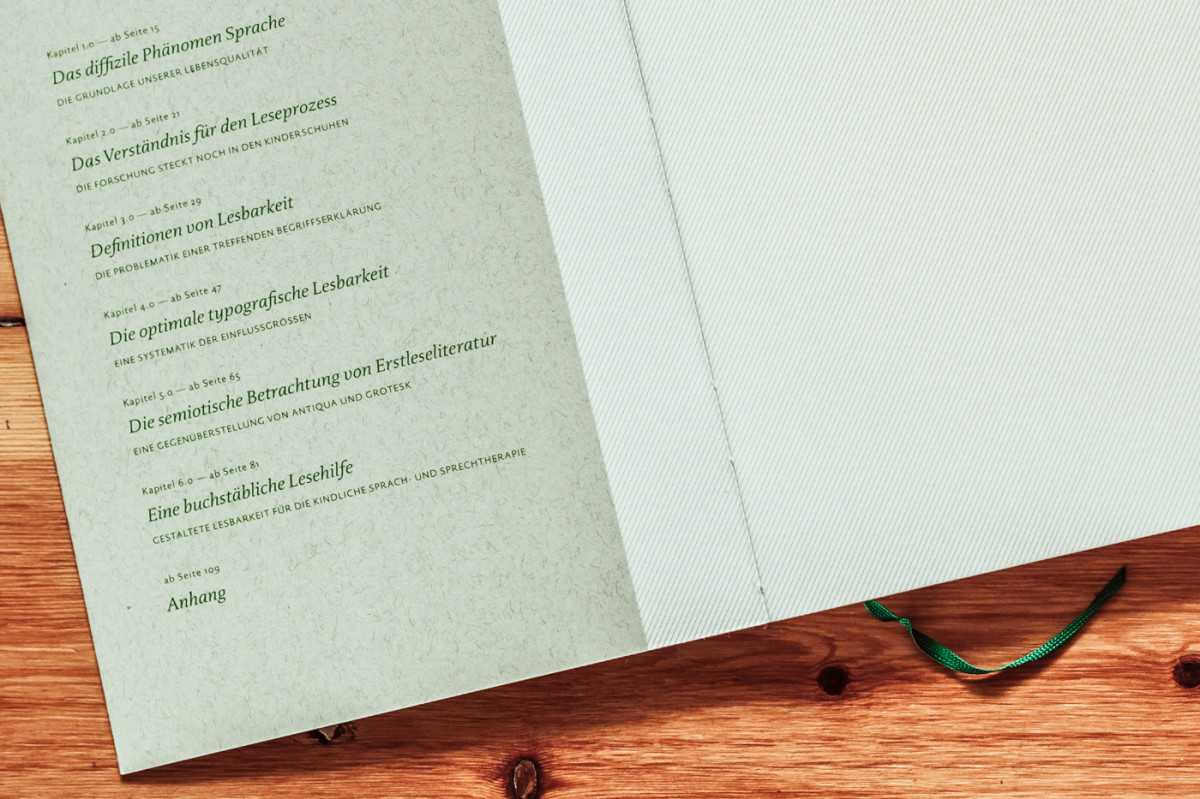 Kapitel 1.0 — ab Seite 15
Das diffizile Phänomen Sprache
DIE GRUNDLAGE UNSERER LEBENSQUALITÄT
Kapitel 2.0 — ab Seite 21
Das Verständnis für den Leseprozess
DIE FORSCHUNG STECKT NOCH IN DEN KINDERSCHUHEN
Kapitel 3.0 — ab Seite 29
Definitionen von Lesbarkeit
DIE PROBLEMATIK EINER TREFFENDEN BEGRIFFSERKLÄRUNG
Kapitel 4.0 — ab Seite 47
Die optimale typografische Lesbarkeit
EINE SYSTEMATIK DER EINFLUSSGRÖSSEN
Kapitel 5.0 — ab Seite 65
Die semiotische Betrachtung von Erstleseliteratur
EINE GEGENÜBERSTELLUNG VON ANTIQUA UND GROTESK
Kapitel 6.0 — ab Seite 81
Eine buchstäbliche Lesehilfe
GESTALTETE LESBARKEIT FÜR DIE KINDLICHE SPRACH- UND SPRECHTHERAPIE
ab Seite 109
Anhang